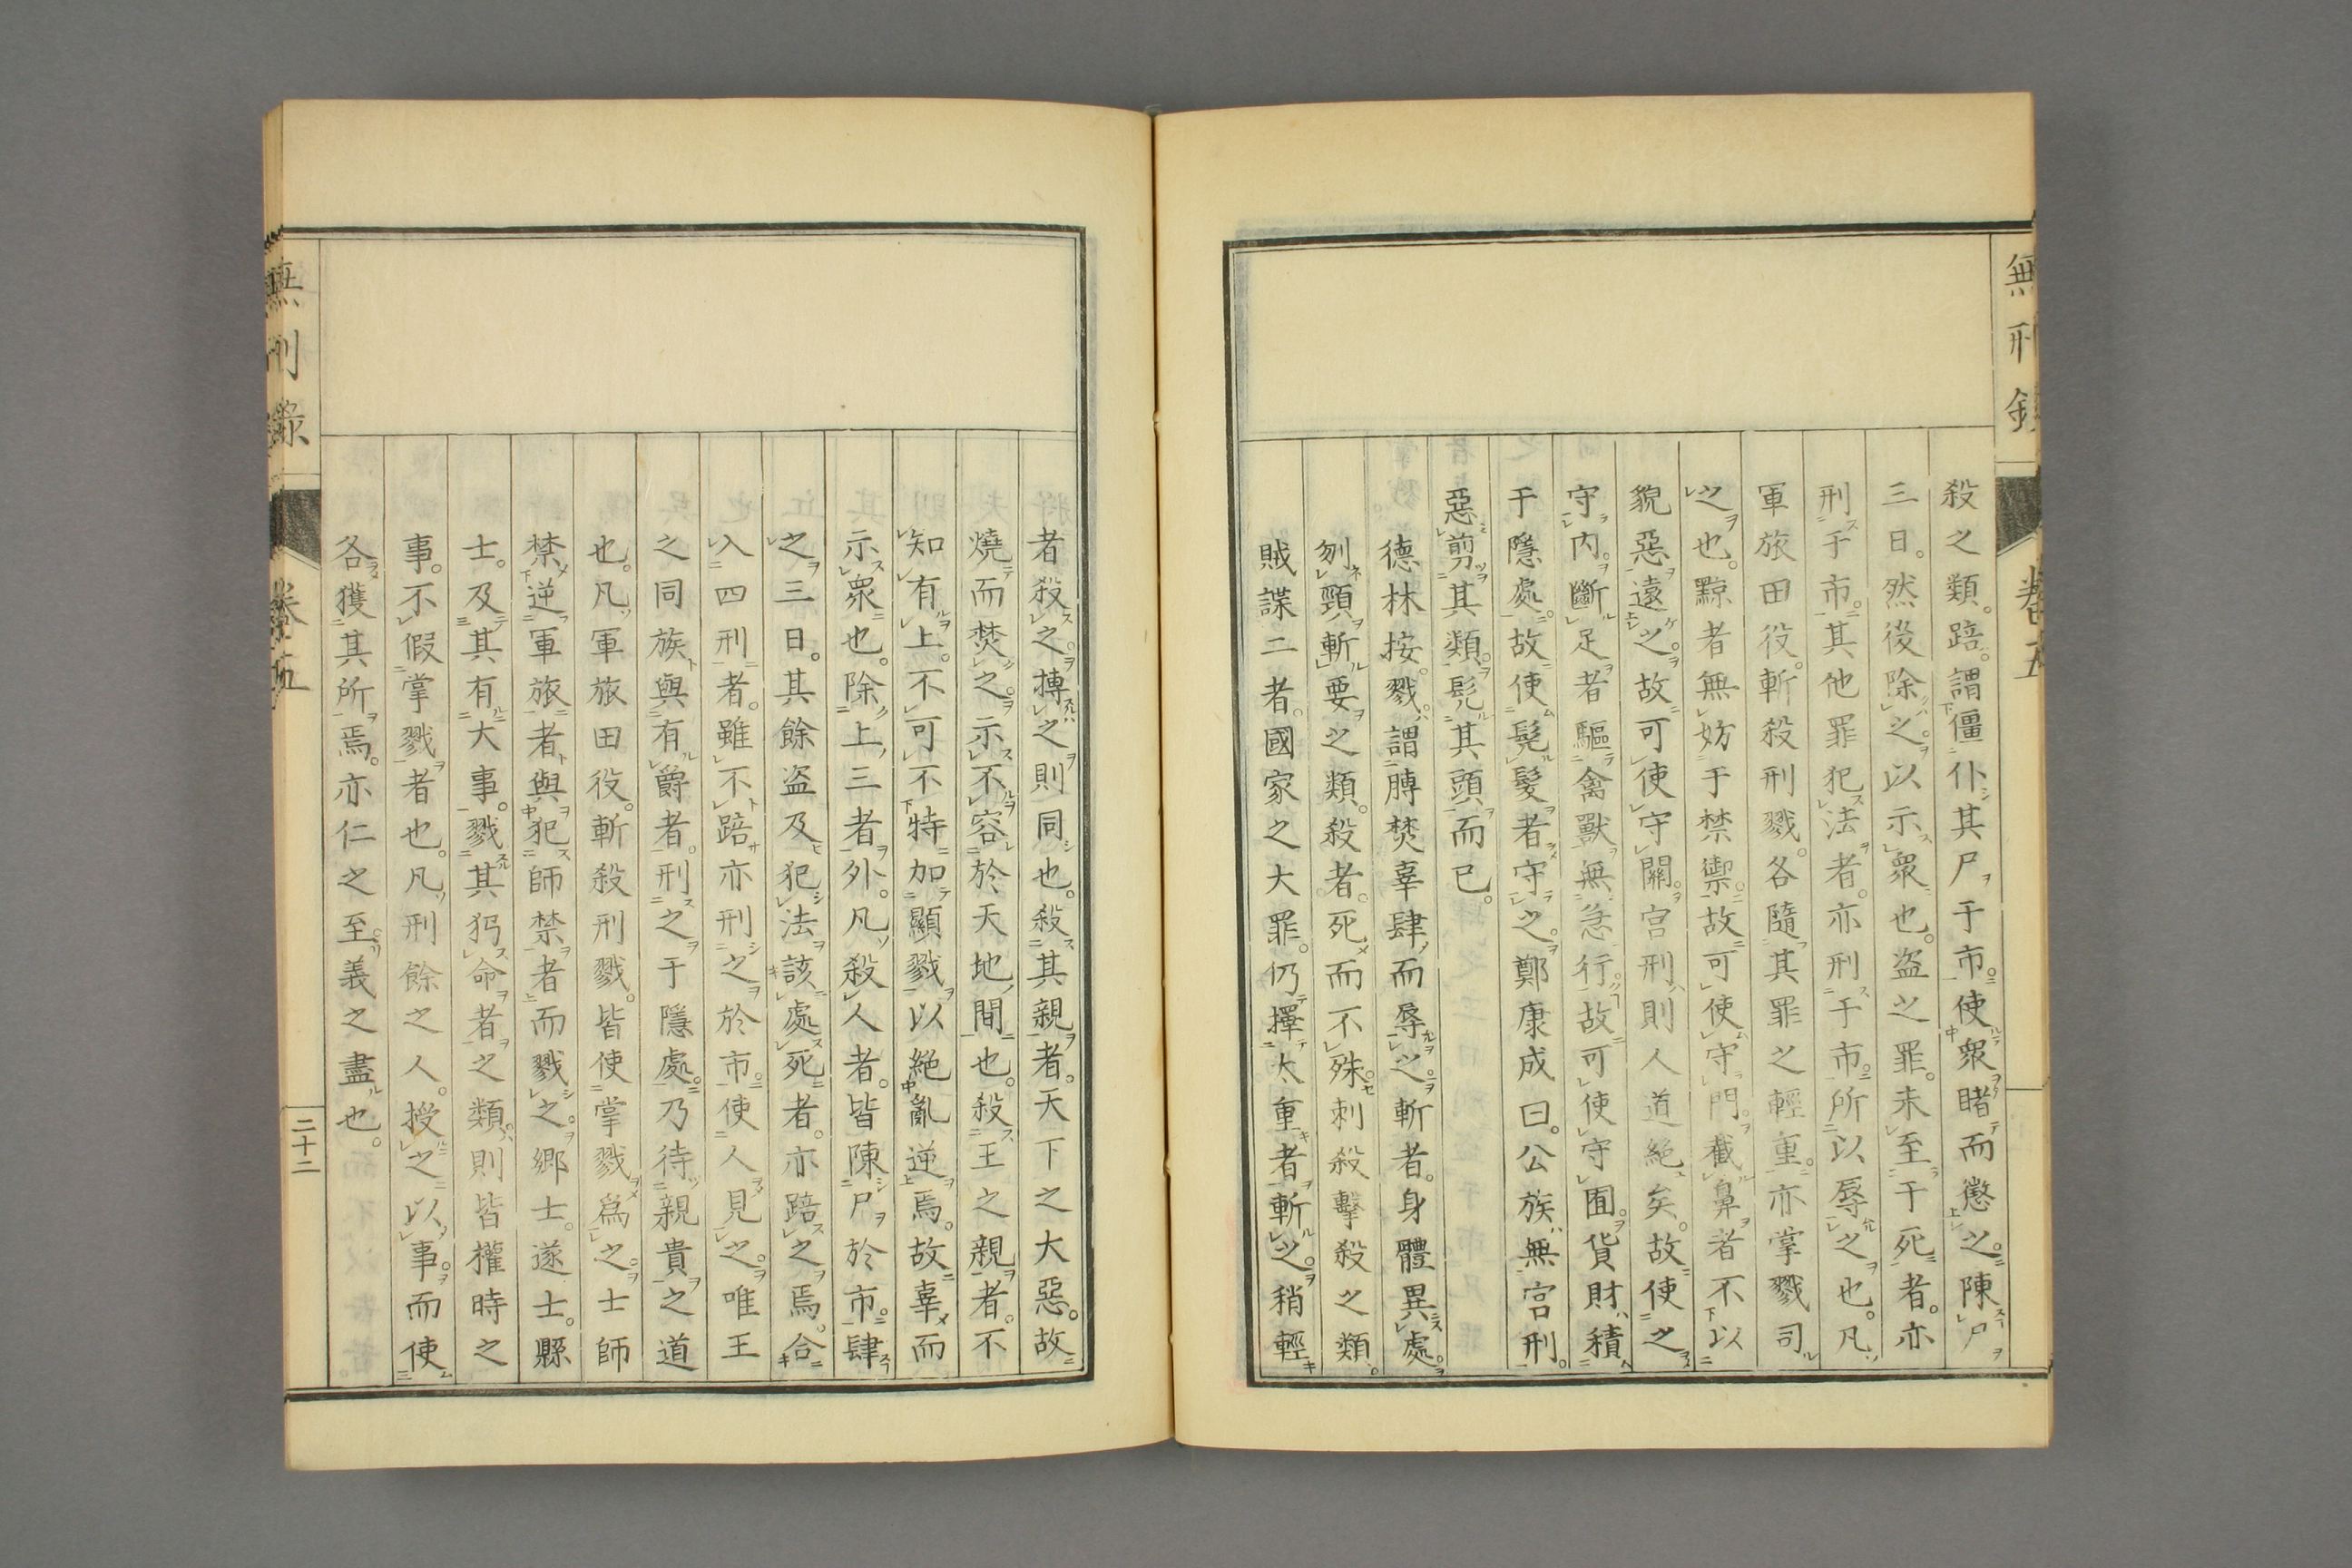 無刑錄
卷五
殺之類。踣。謂僵仆其尸于市。使衆睹而懲之。陳尸
三日。然後除之。以示衆也。盗之罪。未至于死者。亦
刑于市。其他罪犯法者。亦刑于市。所以辱之也。凡
軍旅田役。斬殺刑戮。各隨其罪之輕重。亦掌戮司
之也。黥者無妨于禁禦。故可使守門。截鼻者不以
貌惡遠之。故可使守關。宮刑則人道絕矣。故使之
守内。斷足者驅禽獸無急行。故可使守囿。貨財積
于隱處。故使髠髮者守之。鄭康成曰。公族無宮刑。
惡剪其類。髠其頭而已。
德林按。戮。謂膊焚辜肆而辱之。斬者。身體異處。
刎頸斬要之類。殺者。死而不殊。刺殺擊殺之類。
賊諜二者。國家之大罪。仍擇太重者斬之。稍輕
者殺之。搏之則同也。殺其親者。天下之大惡。故
燒而焚之。示不容於天地間也。殺王之親者。不
知有上。不可不特加顯戮以絕亂逆焉。故辜而
示衆也。除上三者外。凡殺人者。皆陳尸於市。肆
之三日。其餘盗及犯法該處死者。亦踣之焉。合
入四刑者。雖不踣亦刑之於市。使人見之。唯王
之同族與有爵者。刑之于隱處。乃待親貴之道
也。凡軍旅田役。斬殺刑戮。皆使掌戮爲之。士師
禁逆軍旅者與犯師禁者而戮之。鄉士。遂士。縣
士。及其有大事。戮其犯命者之類。則皆權時之
事。不假掌戮者也。凡刑餘之人。授之以事。而使
各獲其所焉。亦仁之至。義之盡也。
無刑錄
卷五
二十二